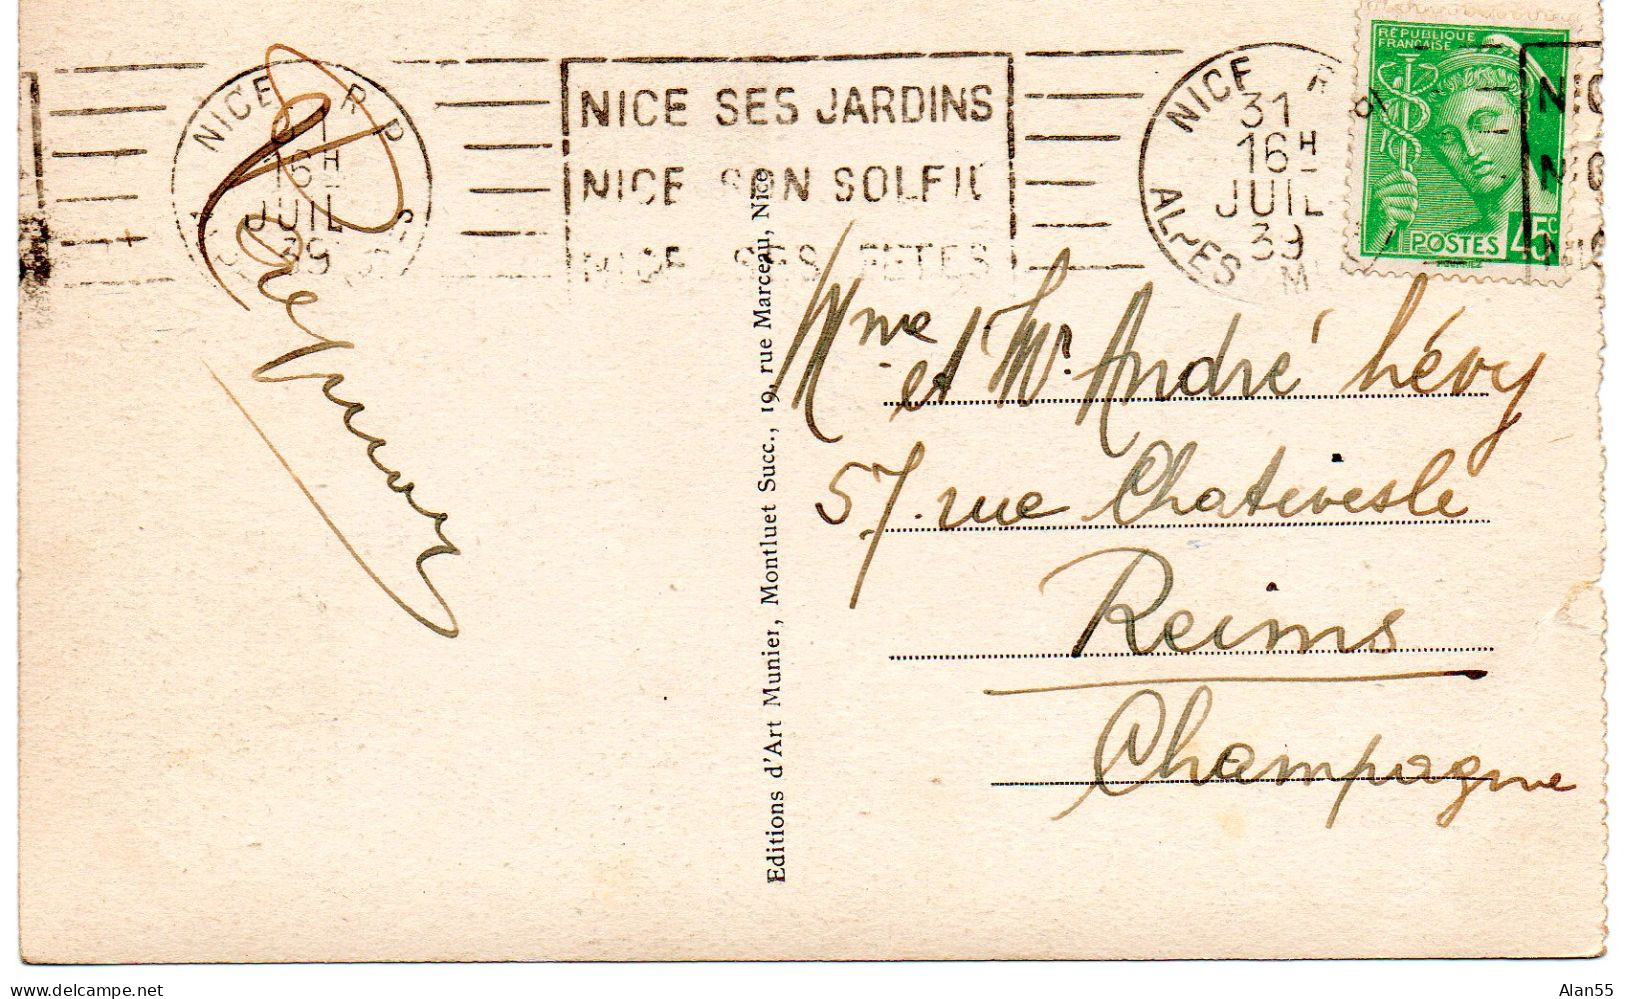 NICE R P
31
16H
JUIL
39
NICE SES JARDINS
NICE SON SOLEIL
NICE SES FETES
NICE R
31
16H
JUIL
39
ALPES M
REPUBLIQUE
FRANÇAISE
POSTES 45c
NIC
NIC
NIC
Mme et Mr. André Lévy
57. rue Chativesle
Reims
Champagne
Editions d'Art Munier, Montluet Succ., 19, rue Marceau, Nice
Alan55